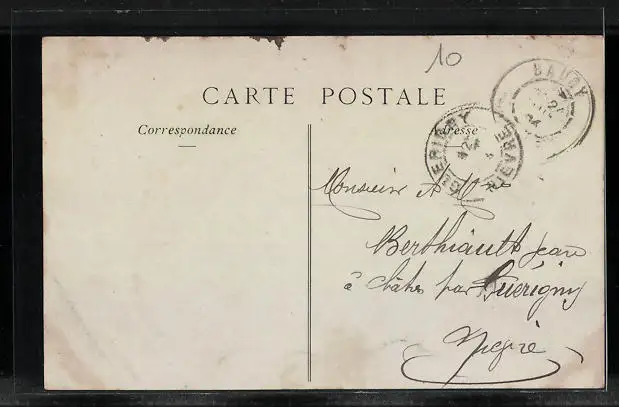 10
CARTE POSTALE
Correspondance
Adresse
GUERIGNY
NIEVRE
Monsieur et Mme
Berthiault Jean
à par Guérigny
Nièvre